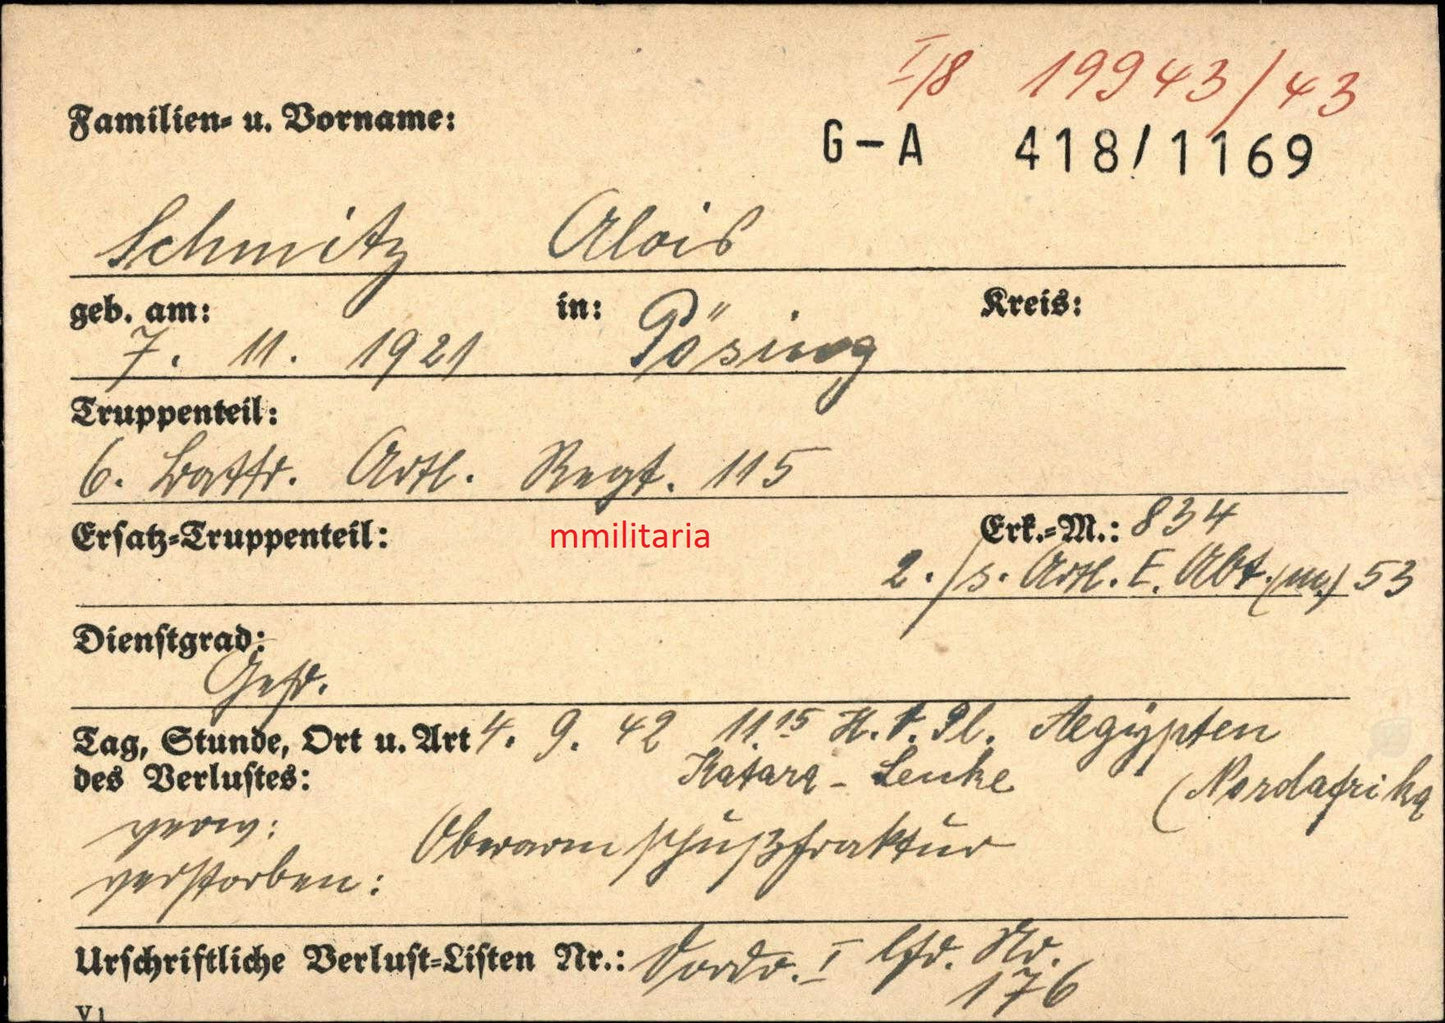 I/8 19943/43
Familien- u. Vorname:
G-A 418/1169
Schmitz Alois
geb. am: in: Kreis:
7. 11. 1921 Pösing
Truppenteil:
6. Battr. Artl. Regt. 115
Ersatz-Truppenteil: mmilitaria Erk.-M.: 834
2./s. Artl. E. Abt. (m.) 53
Dienstgrad:
Gefr.
Tag, Stunde, Ort u. Art 4. 9. 42 11.15 H. V. Pl. Aegypten
des Verlustes: Katara - Senke (Nordafrika
verw: Oberarmschußfraktur
verstorben:
Urschriftliche Verlust-Listen Nr.: I lfd. Nr.
176
V 1